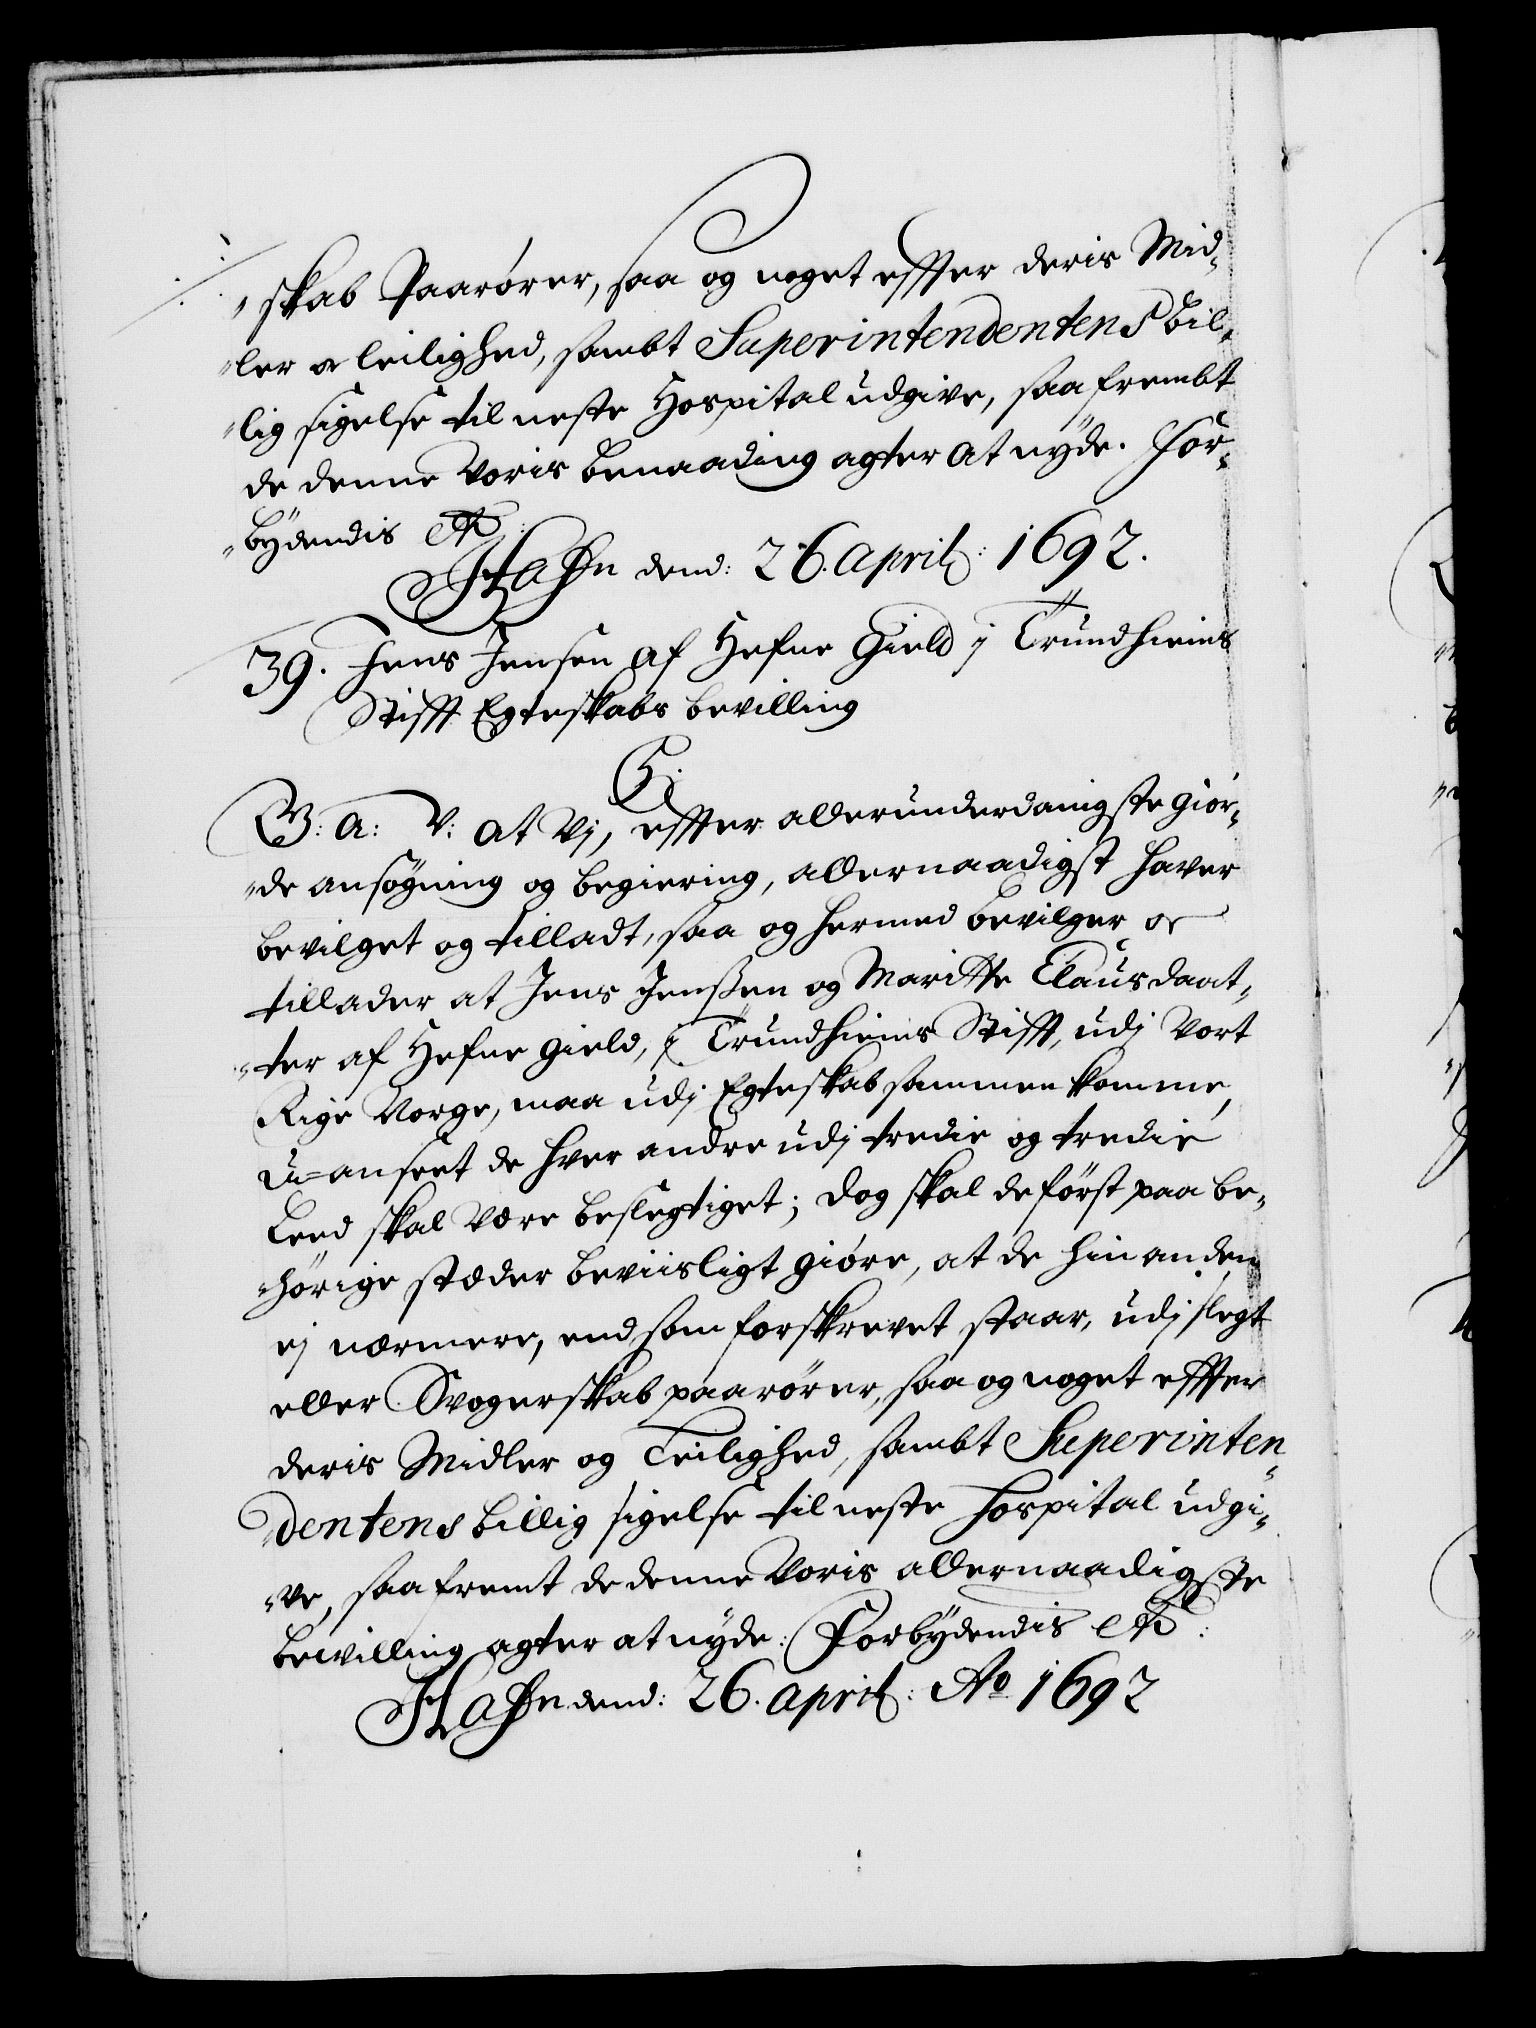 "skab Paarører, saa og noget effter deris Mid¬
"ler og leilighed, sambt Superintendentens bil¬
"lig sigelse til neste Hospital udgive, saafrembt
de denne Voris benaading agter at nyde. For¬
"bydendis etc:
Hafn dend: 26. April: 1692.
39. Jens Jensen af Hefne Gield j Trundhiems
Stifft Egteskabs bevilling
C5.
G: A: V: at Vj, effter allerunderdanigste giør¬
"de ansøgning og begiering, allernaadigst haver
bevilget og tilladt, saa og hermed bevilger og
tillader at Jens Jenssen og Maritte Clausdaat¬
"ter af Hefne gield, j Trundhiems Stifft, udj Vort
Rige Norge, maa udj Egteskab sammenkomme,
U=anseet de hver andre udj tredie og tredie
Leed skal være beslegtiget; dog skal de først paa be¬
"hørige stæder beviisligt giøre, at de hinanden
ej nærmere, end som forskrevet staar, udj slegt
eller Svogerskab paarører, saa og noget effter
deris Midler og Leilighed, sambt Superinten¬
"dentens billig sigelse til neste Hospital udgi¬
"ve, saafremt de denne Voris allernaadigste
bevilling agter at nyde: Forbydendis etc:
Hafn dend: 26. April: Ao 1692